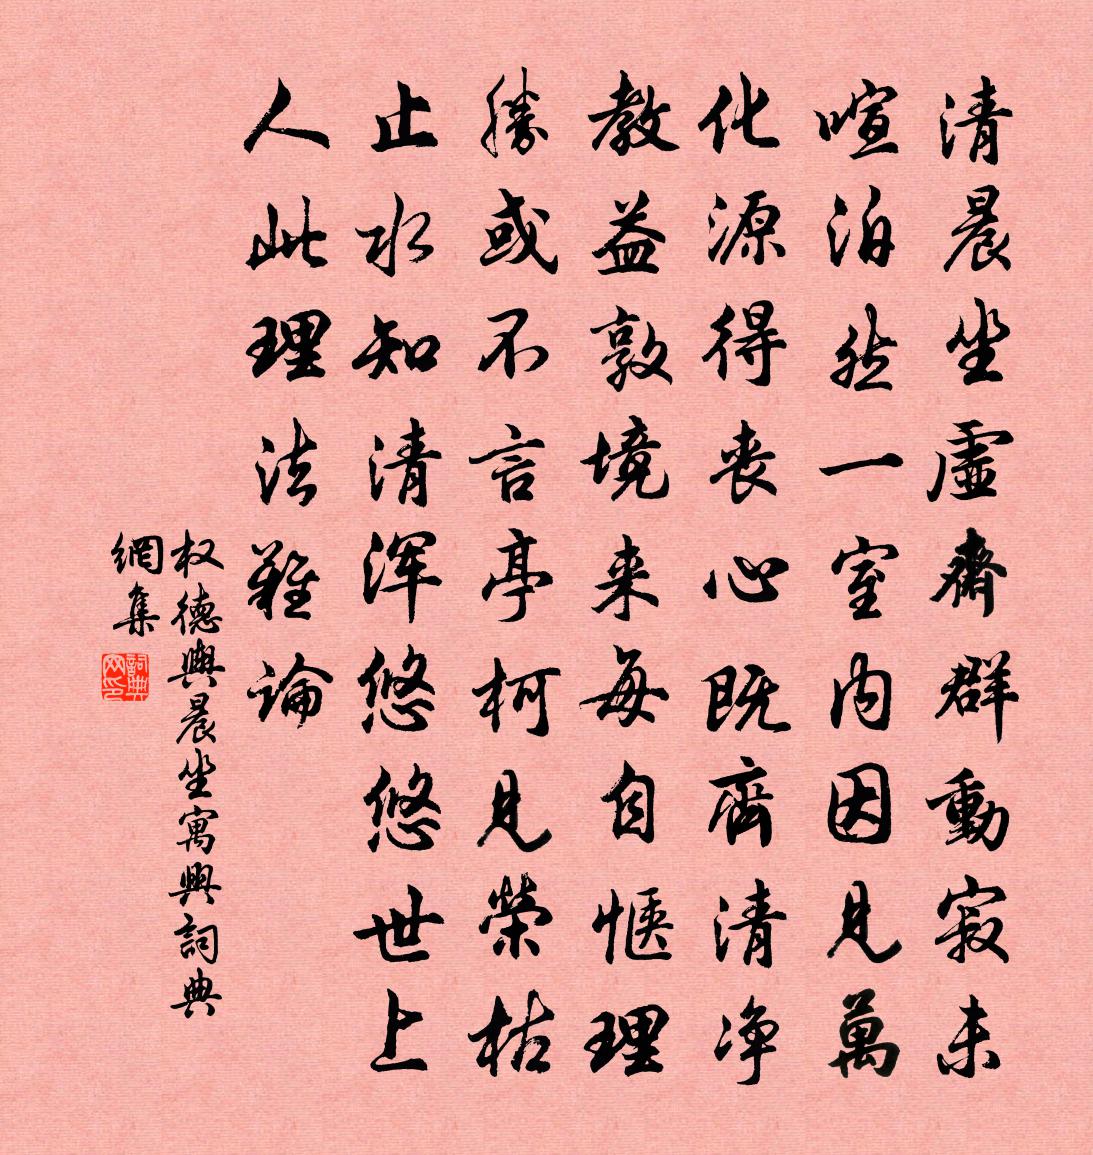 清晨坐虛齋群動寂未
喧泊然一室内因見萬
化源得丧心既齊清净
教益敦境来每自惬理
勝或不言亭柯見榮枯
止水知清浑悠悠世上
人此理法難論
权德輿晨坐寓興詞典
網集
詞典网印